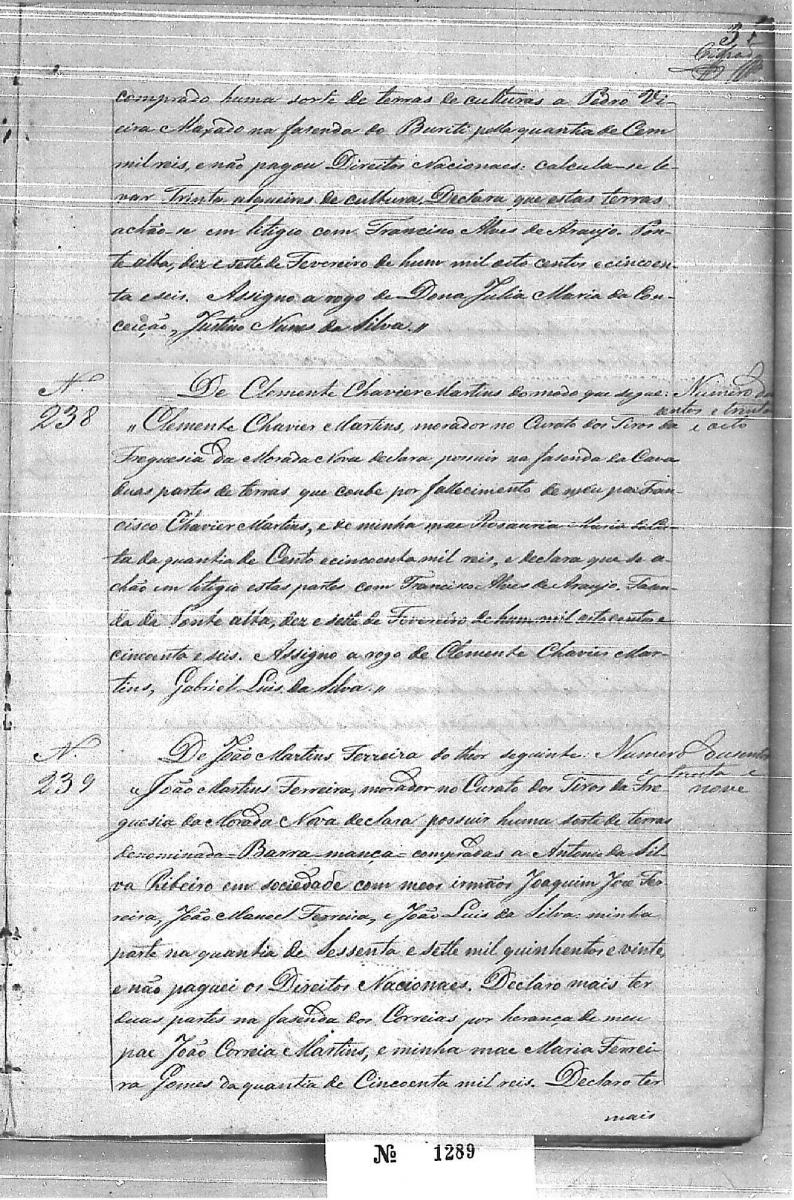 comprado huma sorte de terras de culturas a Pedro Vi-
eira Maxado na fasenda do Buriti pella quantia de Cem
mil reis, e não pagou Direitos Nacionaes: calcula-se le-
var Trinta alqueires de cultura. Declara que estas terras
achão-se em litigio com Francisco Alves de Araujo. Pon-
te alta, dez e sette de Fevereiro de hum mil oito centos e cincoen-
ta e seis. Assigno a rogo de Dona Julia Maria da Con-
ceição, Justino Nunes da Silva."
Nº 238
De Clemente Chavier Martins do modo que segue: Numero du
sentos e trinta
e oito
"Clemente Chavier Martins, morador no Curato dos Tiros da
Freguesia da Morada Nova declara possuir na fasenda da Cava
duas partes de terras que coube por fallecimento de meu pae Fran-
cisco Chavier Martins, e de minha mae Rosauria Maria
da quantia de Cento e cincoenta mil reis, e declara que se a-
chão em litigio estas partes com Francisco Alves de Araujo. Fasen-
da da Ponte alta, dez e sette de Fevereiro de hum mil oito centos e
cincoenta e seis. Assigno a rogo de Clemente Chavier Mar-
tins, Gabriel Luis da Silva."
Nº 239
De João Martins Ferreira do theor seguinte: Numero dusentos
e trinta e
nove
"João Martins Ferreira, morador no Curato dos Tiros da Fre
guesia da Morada Nova declara possuir huma sorte de terras
denominada = Barra mança = compradas a Antonio da Sil-
va Ribeiro em sociedade com meos irmãos Joaquim Joze Fer-
reira, João Manoel Ferreira, e João Luis da Silva: minha
parte na quantia de Sessenta e sette mil quinhentos e vinte,
e não paguei os Direitos Nacionaes. Declaro mais ter
duas partes na fasenda dos Correias por herança de meu
pae João Correia Martins, e minha mae Maria Ferrei-
ra Gomes da quantia de Cincoenta mil reis. Declaro ter
mais
Nº 1289